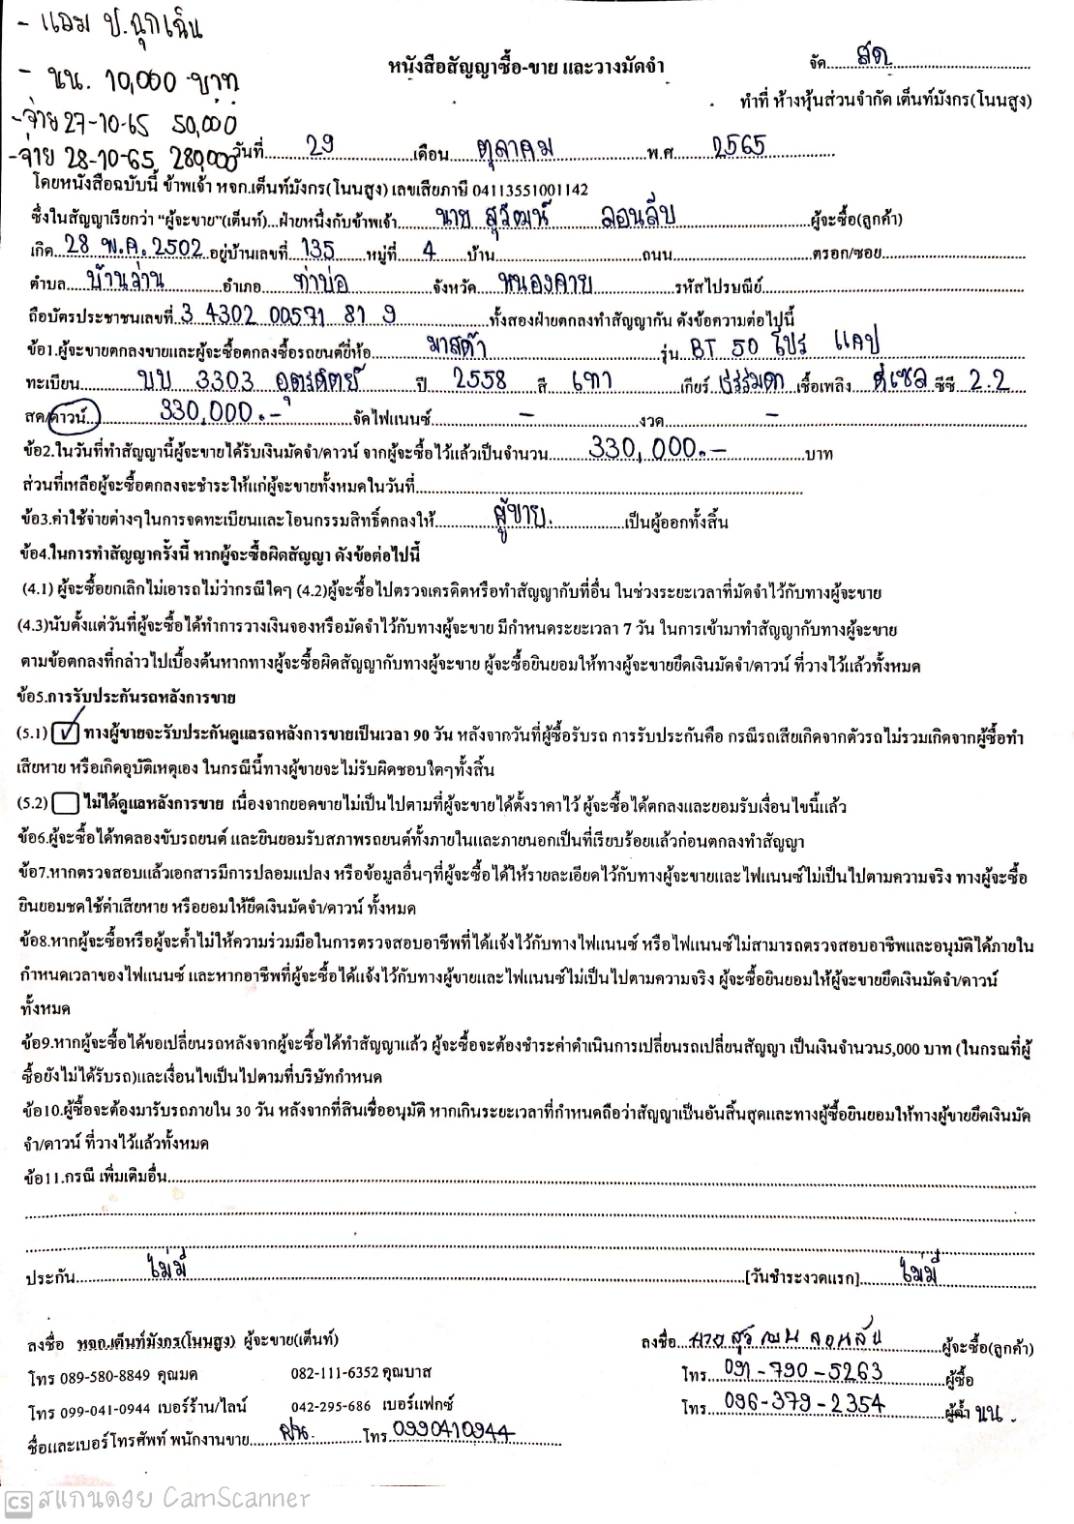 - แถม ป.ฉุกเฉิน
- นน. 10,000 บาท
-จ่าย 27-10-65 50,000
-จ่าย 28-10-65 280,000
หนังสือสัญญาซื้อ-ขาย และวางมัดจำ
จัด สด
ทำที่ ห้างหุ้นส่วนจำกัด เต็นท์มังกร(โนนสูง)
วันที่ 29 เดือน ตุลาคม พ.ศ. 2565
โดยหนังสือฉบับนี้ ข้าพเจ้า หจก.เต็นท์มังกร(โนนสูง) เลขเสียภาษี 04113551001142
ซึ่งในสัญญาเรียกว่า "ผู้จะขาย"(เต็นท์)...ฝ่ายหนึ่งกับข้าพเจ้า นาย สุวัฒน์ ลอนลืบ ผู้จะซื้อ(ลูกค้า)
เกิด 28 พ.ค. 2502 อยู่บ้านเลขที่ 135 หมู่ที่ 4 บ้าน ถนน ตรอก/ซอย
ตำบล บ้านว่าน อำเภอ ท่าบ่อ จังหวัด หนองคาย รหัสไปรษณีย์
ถือบัตรประชาชนเลขที่ 3 4302 00571 81 9 ทั้งสองฝ่ายตกลงทำสัญญากัน ดังข้อความต่อไปนี้
ข้อ1.ผู้จะขายตกลงขายและผู้จะซื้อตกลงซื้อรถยนต์ยี่ห้อ มาสด้า รุ่น BT 50 โปร แคป
ทะเบียน บบ 3303 อุตรดิตถ์ ปี 2558 สี เทา เกียร์ ธรรมดา เชื้อเพลิง ดีเซล ซีซี 2.2
สด/ดาวน์ 330,000.- จัดไฟแนนซ์ - งวด -
ข้อ2.ในวันที่ทำสัญญานี้ผู้จะขายได้รับเงินมัดจำ/ดาวน์ จากผู้จะซื้อไว้แล้วเป็นจำนวน 330,000.- บาท
ส่วนที่เหลือผู้จะซื้อตกลงจะชำระให้แก่ผู้จะขายทั้งหมดในวันที่
ข้อ3.ค่าใช้จ่ายต่างๆในการจดทะเบียนและโอนกรรมสิทธิ์ตกลงให้ ผู้ขาย. เป็นผู้ออกทั้งสิ้น
ข้อ4.ในการทำสัญญาครั้งนี้ หากผู้จะซื้อผิดสัญญา ดังข้อต่อไปนี้
(4.1) ผู้จะซื้อยกเลิกไม่เอารถไม่ว่ากรณีใดๆ (4.2)ผู้จะซื้อไปตรวจเครดิตหรือทำสัญญากับที่อื่น ในช่วงระยะเวลาที่มัดจำไว้กับทางผู้จะขาย
(4.3)นับตั้งแต่วันที่ผู้จะซื้อได้ทำการวางเงินจองหรือมัดจำไว้กับทางผู้จะขาย มีกำหนดระยะเวลา 7 วัน ในการเข้ามาทำสัญญากับทางผู้จะขาย
ตามข้อตกลงที่กล่าวไปเบื้องต้นหากทางผู้จะซื้อผิดสัญญากับทางผู้จะขาย ผู้จะซื้อยินยอมให้ทางผู้จะขายยึดเงินมัดจำ/ดาวน์ ที่วางไว้แล้วทั้งหมด
ข้อ5.การรับประกันรถหลังการขาย
(5.1) ทางผู้ขายจะรับประกันดูแลรถหลังการขายเป็นเวลา 90 วัน หลังจากวันที่ผู้ซื้อรับรถ การรับประกันคือ กรณีรถเสียเกิดจากตัวรถไม่รวมเกิดจากผู้ซื้อทำ
เสียหาย หรือเกิดอุบัติเหตุเอง ในกรณีนี้ทางผู้ขายจะไม่รับผิดชอบใดๆทั้งสิ้น
(5.2) ไม่ได้ดูแลหลังการขาย เนื่องจากยอดขายไม่เป็นไปตามที่ผู้จะขายได้ตั้งราคาไว้ ผู้จะซื้อได้ตกลงและยอมรับเงื่อนไขนี้แล้ว
ข้อ6.ผู้จะซื้อได้ทดลองขับรถยนต์ และยินยอมรับสภาพรถยนต์ทั้งภายในและภายนอกเป็นที่เรียบร้อยแล้วก่อนตกลงทำสัญญา
ข้อ7.หากตรวจสอบแล้วเอกสารมีการปลอมแปลง หรือข้อมูลอื่นๆที่ผู้จะซื้อได้ให้รายละเอียดไว้กับทางผู้จะขายและไฟแนนซ์ไม่เป็นไปตามความจริง ทางผู้จะซื้อ
ยินยอมชดใช้ค่าเสียหาย หรือยอมให้ยึดเงินมัดจำ/ดาวน์ ทั้งหมด
ข้อ8.หากผู้จะซื้อหรือผู้จะค้ำไม่ให้ความร่วมมือในการตรวจสอบอาชีพที่ได้แจ้งไว้กับทางไฟแนนซ์ หรือไฟแนนซ์ไม่สามารถตรวจสอบอาชีพและอนุมัติได้ภายใน
กำหนดเวลาของไฟแนนซ์ และหากอาชีพที่ผู้จะซื้อได้แจ้งไว้กับทางผู้ขายและไฟแนนซ์ไม่เป็นไปตามความจริง ผู้จะซื้อยินยอมให้ผู้จะขายยึดเงินมัดจำ/ดาวน์
ทั้งหมด
ข้อ9.หากผู้จะซื้อได้ขอเปลี่ยนรถหลังจากผู้จะซื้อได้ทำสัญญาแล้ว ผู้จะซื้อจะต้องชำระค่าดำเนินการเปลี่ยนรถเปลี่ยนสัญญา เป็นเงินจำนวน5,000 บาท (ในกรณที่ผู้
ซื้อยังไม่ได้รับรถ)และเงื่อนไขเป็นไปตามที่บริษัทกำหนด
ข้อ10.ผู้ซื้อจะต้องมารับรถภายใน 30 วัน หลังจากที่สินเชื่ออนุมัติ หากเกินระยะเวลาที่กำหนดถือว่าสัญญาเป็นอันสิ้นสุดและทางผู้ซื้อยินยอมให้ทางผู้ขายยึดเงินมัด
จำ/ดาวน์ ที่วางไว้แล้วทั้งหมด
ข้อ11.กรณี เพิ่มเติมอื่น
ประกัน ไม่มี [วันชำระงวดแรก] ไม่มี
ลงชื่อ หจก.เต็นท์มังกร(โนนสูง) ผู้จะขาย(เต็นท์)
ลงชื่อ นาย สุวัฒน์ ลอนลืบ ผู้จะซื้อ(ลูกค้า)
โทร 089-580-8849 คุณมด 082-111-6352 คุณบาส
โทร 091-790-5263 ผู้ซื้อ
โทร 099-041-0944 เบอร์ร้าน/ไลน์ 042-295-686 เบอร์แฟกซ์
โทร 096-379-2354 ผู้ค้ำ นน.
ชื่อและเบอร์โทรศัพท์ พนักงานขาย โทร 0990410944
CS สแกนด้วย CamScanner